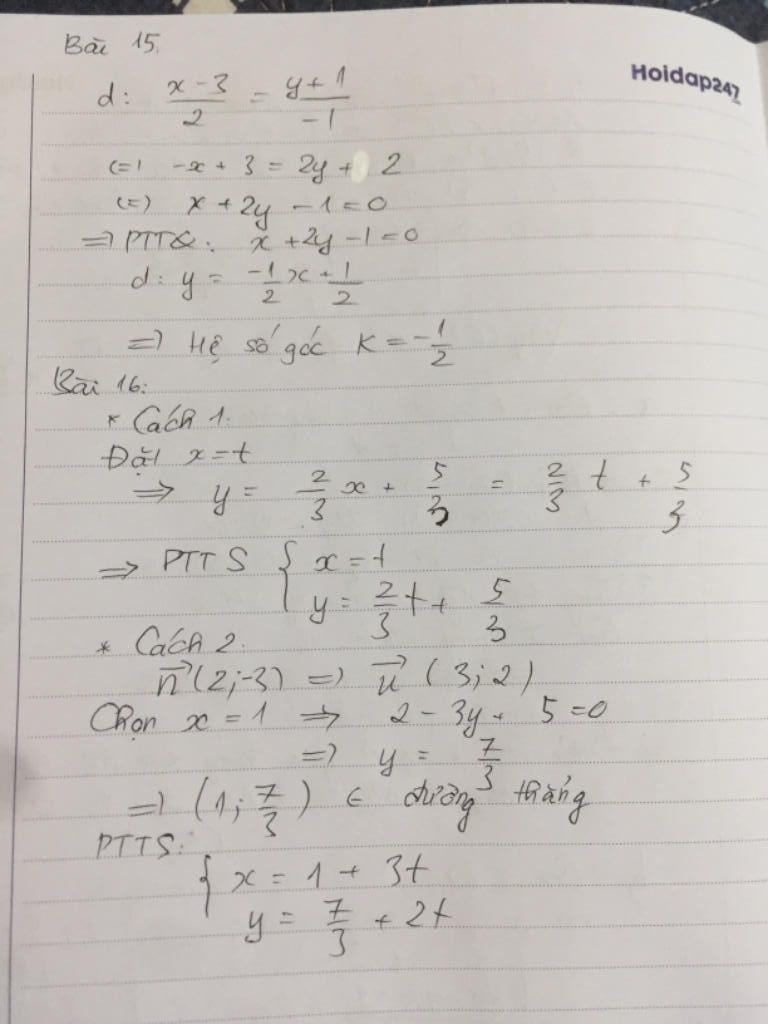 Bài 15.
Hoidap247
d: (x - 3)/2 = (y + 1)/-1
(=) -x + 3 = 2y + 2
(=) x + 2y - 1 = 0
=> PTTQ: x + 2y - 1 = 0
d: y = -1/2 x + 1/2
=> Hệ số góc K = -1/2
Bài 16:
* Cách 1.
Đặt x = t
=> y = 2/3 x + 5/3 = 2/3 t + 5/3
=> PTTS { x = t
y = 2/3 t + 5/3
* Cách 2.
n⃗ (2;-3) => u⃗ (3;2)
Chọn x = 1 => 2 - 3y + 5 = 0
=> y = 7/3
=> (1; 7/3) ∈ đường thẳng
PTTS:
{ x = 1 + 3t
y = 7/3 + 2t